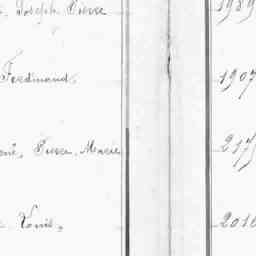 Joseph Pierre 1989
Ferdinand 1907
René, Pierre, Marie 217
Louis, 2010